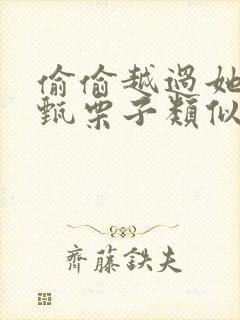 偷偷越過她
甄栗子類似
齊藤鉄夫